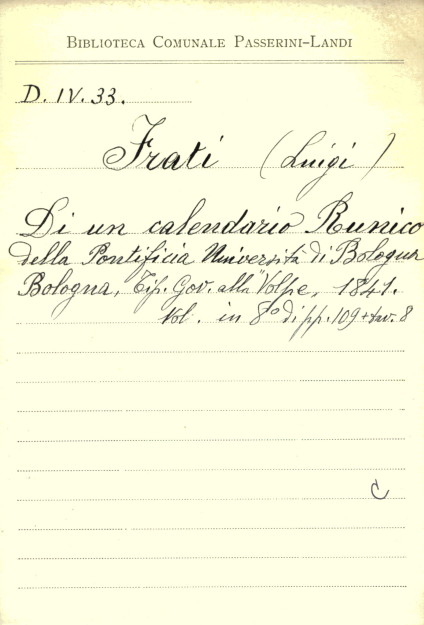 BIBLIOTECA COMUNALE PASSERINI-LANDI
D. IV. 33.
Frati (Luigi)
Di un calendario Runico
della Pontificia Università di Bologna
Bologna, Tip. Gov. alla "Volpe, 1841.
Vol. in 8º di pp. 109 + tav. 8
C